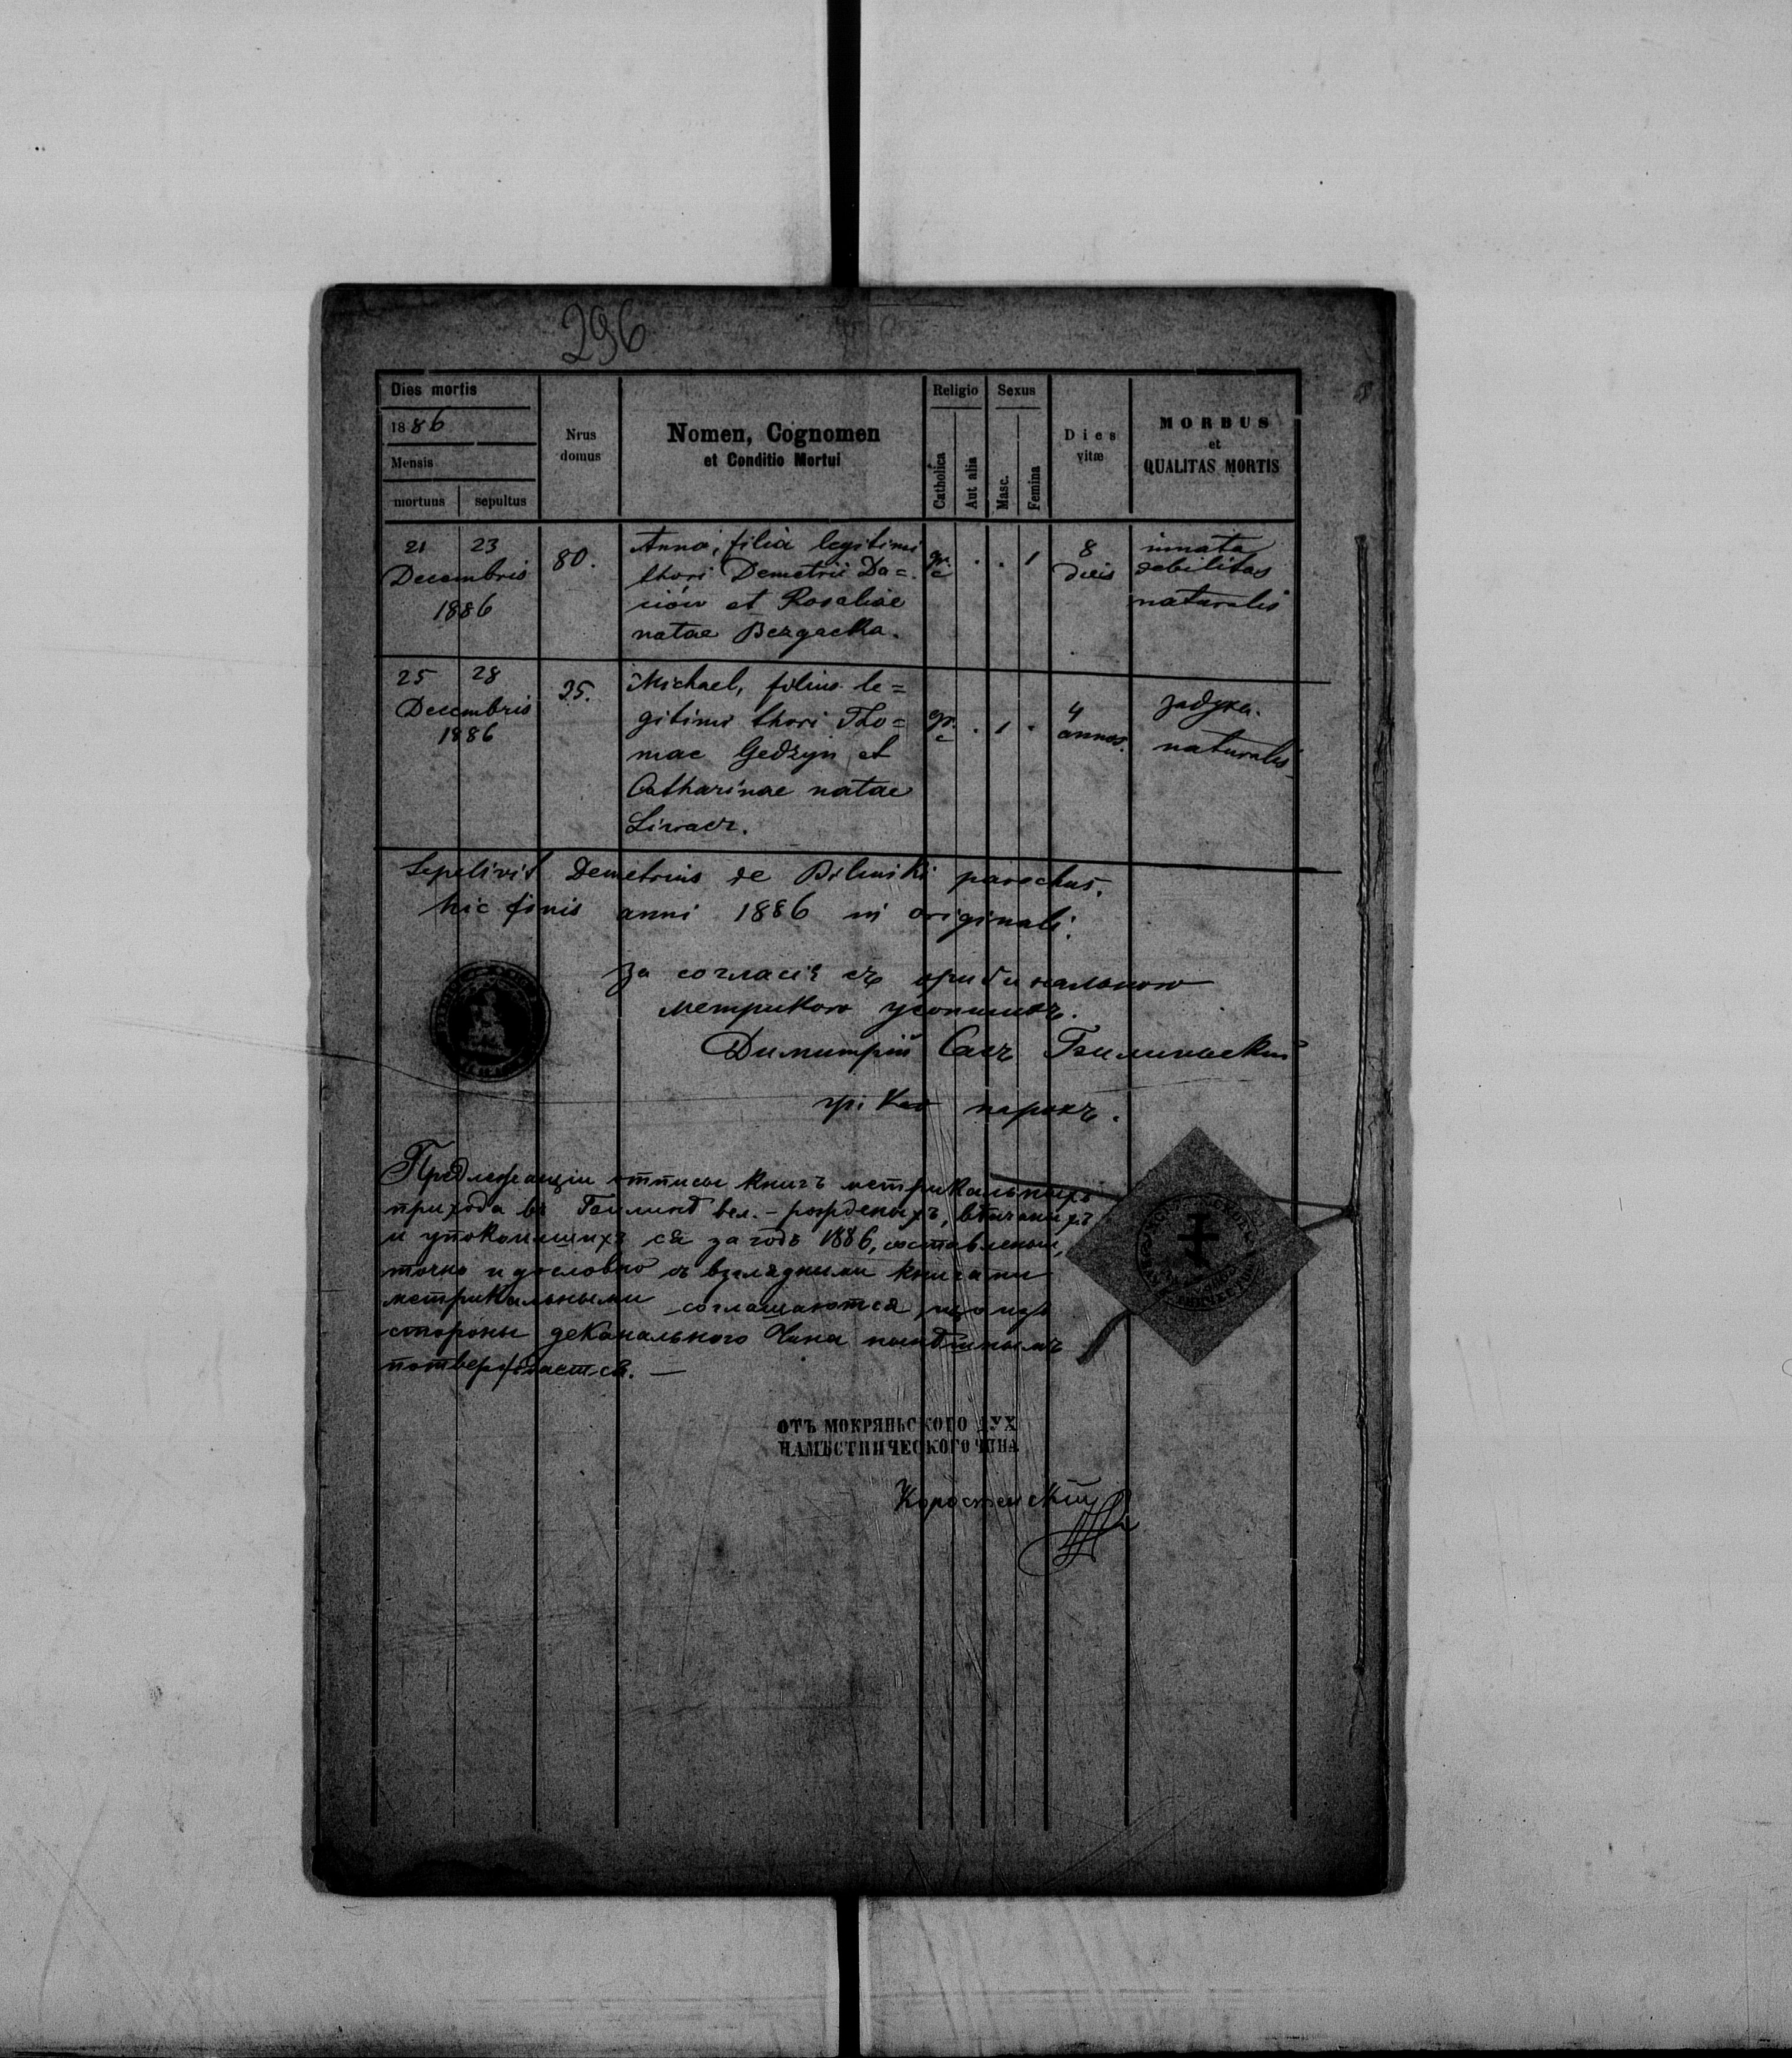 296
Dies mortis
1886
Mensis
mortuus sepultus
Nrus domus
Nomen, Cognomen
et Conditio Mortui
Religio
Catholica
Aut alia
Sexus
Masc.
Femina
Dies vitæ
MORBUS
et
QUALITAS MORTIS
21 23
Decembris
1886
80.
Anna, filia legitimi
thori Demetrii Da=
ciów et Rosaliae
natae Bezgacka.
gr. c
. . 1
8
dies
innata
debilitas
naturalis
25 28
Decembris
1886
25.
Michael, filius le=
gitimi thori Tho=
mae Gedzyn et
Catharinae natae
gr. c
. 1 .
4
annos.
задуха.
naturalis
Sepelivit Demetrius de Bilinski parochus.
hic finis anni 1886 in originali.
За согласіе съ оригинальною
метрикою усопшихъ.
Димитрій Сасъ Билиньскій
гр. кат парохъ.
Предлежащіи отписы книгъ метрикальныхъ
прихода въ вел. - рожденыхъ, вѣнчаныхъ
и упокоившихъ ся за годъ 1886, составленыи,
точно и дословно съ взглядными книгами
метрикальными соглашаются, що изъ
стороны деканального Чина
потверждаеся. —
ОТЪ МОКРЯНЬСКОГО ДУХ
НАМѢСТНИЧЕСКОГО ЧИНА